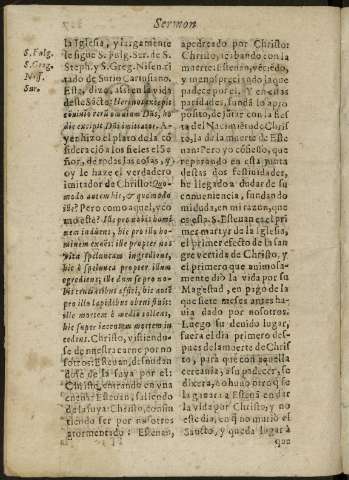 Sermon
S. Fulg.
S. Greg.
Niss.
Sur.
la Iglesia, y largamente
le sigue S. Fulg. Ser. de S.
Steph. y S. Greg. Nisen ci
tado de Surio Cartusiano.
Este, dize, assi en la vida
deste Sãcto: Hernos excepit
hodie excipit Dñs imitator. A-
yer hizo el plato de la cõ
sideraciõ a los fieles el Se
ñor, de todas las cosas, y
oy le haze el verdadero
imitador de Christo: Quo-
modo autem hic, & quomodo
ille? Pero como aquel, y co
mo este? Ille pro nobis homi
nem induens, hic pro illo ho-
minem exuens: ille propter no-
vitæ speluncam ingrediens,
hic è spelunca propter illum
egrediens: ille dum se pro no-
pro illo lapidibus obrui sinit:
ille mortem è medio tollens,
hic super iacentem mortem in
cedens. Christo, vistiendo-
se de nuestra carne por no
sotros: Esteuan, desnudan
dose de la suya por el:
Christo, entrando en vna
cueua: Esteuan, saliendo
de la suya: Christo, consin
tiendo ser por nosotros
atormentado: Esteuan,
apedreado por Christo:
Christo, acabando con la
muerte: Esteuan, viẽdo,
y menospreciando la que
padece por el. Y en estas
paridades, funda lo apro
posito, de jũtar con la fies
ta del Nacimiẽto de Chris
to, la de la muerte de Este
uan: Pero yo cõfieso, que
reparando en esta junta
destas dos festiuidades,
he llegado a dudar de su
conueniencia, fundando
mi duda, en mi razon, que
es esta. S. Esteuan es el pri
mer martyr de la Iglesia,
el primer efecto de la san
gre vertida de Christo, y
el primero que animosa-
mente diò la vida por su
Magestad, en pago de la
que siete meses antes ha-
uia dado por nosotros.
Luego su deuido lugar,
fuera el dia primero des-
pues de la muerte de Chris
to, para q̃ con aquella
cercania, a su padecer, se
dixera, ò huuo otro q̃ se
la ganara a Esteuã en dar
la vida por Christo, y no
este dia, en q̃ no muriò el
Sancto, y queda lugar à
que